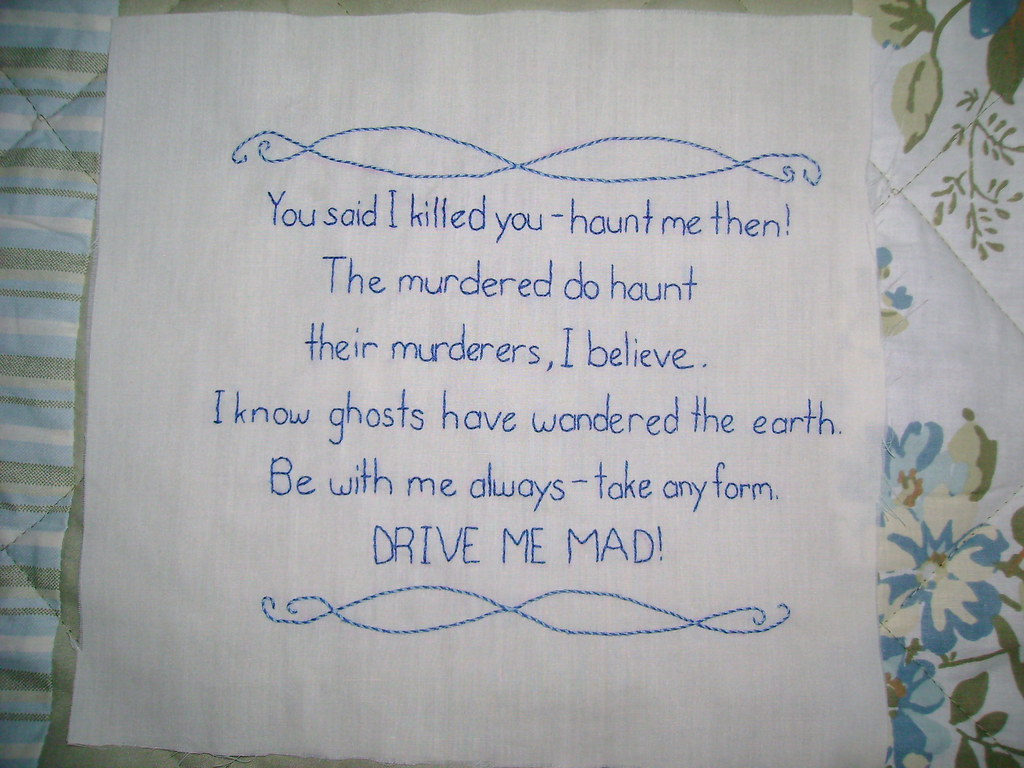 You said I killed you - haunt me then!
The murdered do haunt
their murderers, I believe.
I know ghosts have wandered the earth.
Be with me always - take any form.
DRIVE ME MAD!